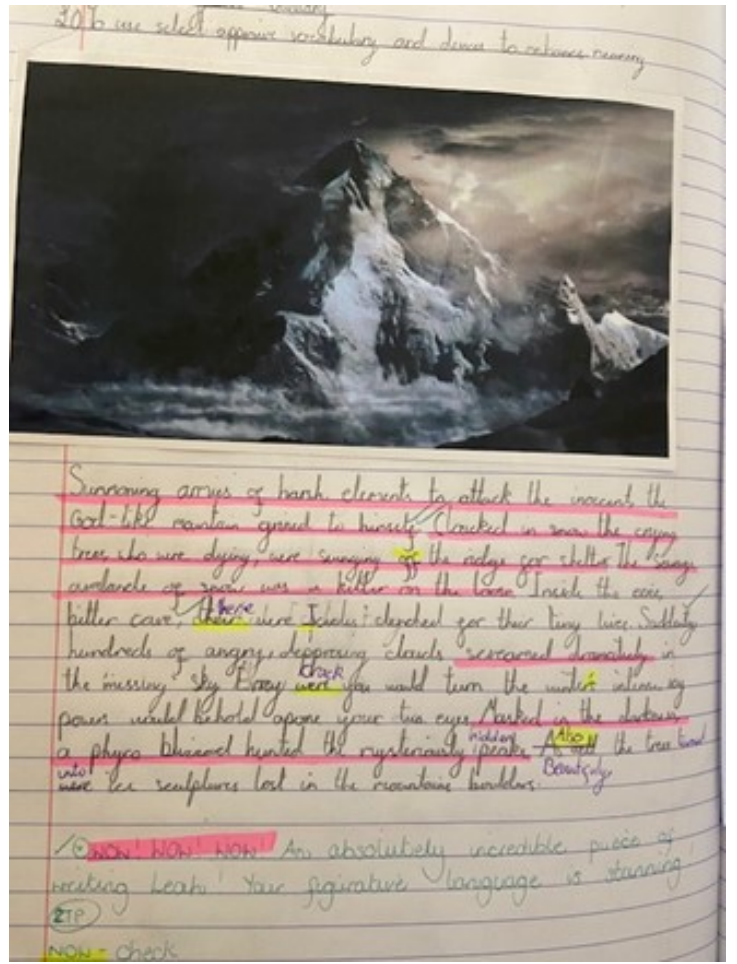 LO: To use select and vocabulary and devices to enhance meaning
Summoning armies of harsh elements to attack the inocents the
God-like mountain grined to himself. Cloacked in snow the crying
trees who were dying, were swinging off the ridge for shelter. The savage
avalanche of snow was a killer on the loose. Inside the
bitter cave, their there were Icicles clenched for their tiny lives. Suddenly
hundreds of angry, depprosing clouds screamed dramaticly in
the missing sky. Every were crack you would turn the winters intense icy
powers would behold apone your two eyes. Masked in the darkness
a phyco blizzered hunted the mysteriously hidden peaks. Also the trees turned
into were Ice sculptures lost in the mountains boulders. Beautifuly
WOW! WOW! WOW! An absolutely incredible piece of
writing Leah! Your figurative language is stunning!
2TP
NOW - check